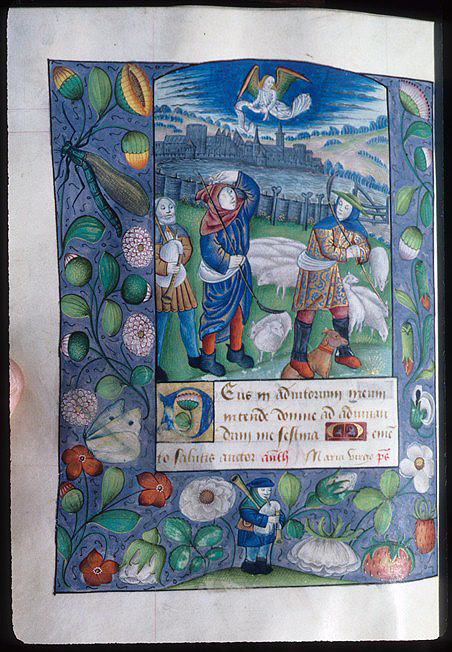 Deus in adiutorium meum
intende domine ad adiuuan
dum me festina Memē
to salutis auctor anth Maria virgo ps